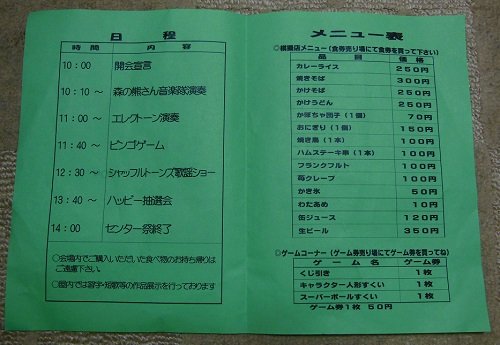 日 程
時 間 内 容
10:00 開会宣言
10:10～ 森の熊さん音楽隊演奏
11:00～ エレクトーン演奏
11:40～ ビンゴゲーム
12:30～ シャッフルトーンズ歌謡ショー
13:40～ ハッピー抽選会
14:00 センター祭終了
○会場内でご購入いただいた食べ物のお持ち帰りは
ご遠慮下さい。
○館内では習字・短歌等の作品展示を行っております
メニュー表
◇模擬店メニュー(食券売り場にて食券を買って下さい)
品 目 価 格
カレーライス 250円
焼きそば 300円
かけそば 250円
かけうどん 250円
かぼちゃ団子(1個) 70円
おにぎり(1個) 150円
焼き鳥(1本) 100円
ハムステーキ串(1本) 100円
フランクフルト 100円
苺クレープ 100円
かき氷 50円
わたあめ 10円
缶ジュース 120円
生ビール 350円
◇ゲームコーナー(ゲーム券売り場にてゲーム券を買ってね)
ゲ ー ム 名 ゲーム券
くじ引き 1枚
キャラクター人形すくい 1枚
スーパーボールすくい 1枚
ゲーム券1枚 50円